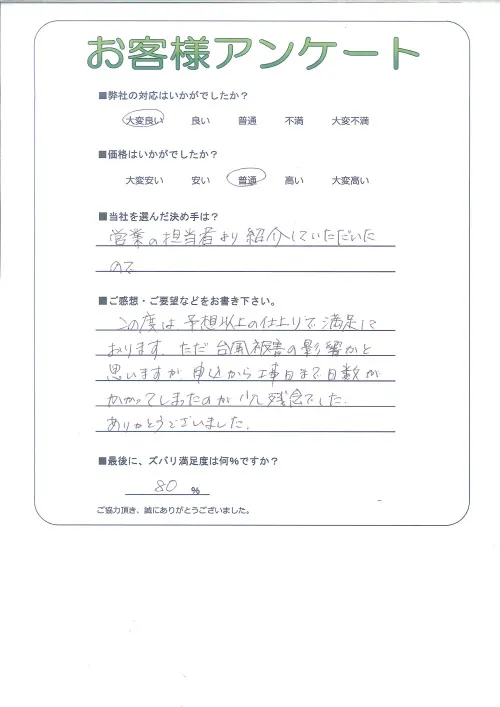 お客様アンケート
■弊社の対応はいかがでしたか？
大変良い 良い 普通 不満 大変不満
■価格はいかがでしたか？
大変安い 安い 普通 高い 大変高い
■当社を選んだ決め手は？
営業の担当者より紹介していただいた
ので
■ご感想・ご要望などをお書き下さい。
この度は予想以上の仕上りで満足して
おります。ただ台風被害の影響かと
思いますが申込から工事日まで日数が
かかってしまったのが少し残念でした。
ありがとうございました。
■最後に、ズバリ満足度は何%ですか？
80 %
ご協力頂き、誠にありがとうございました。